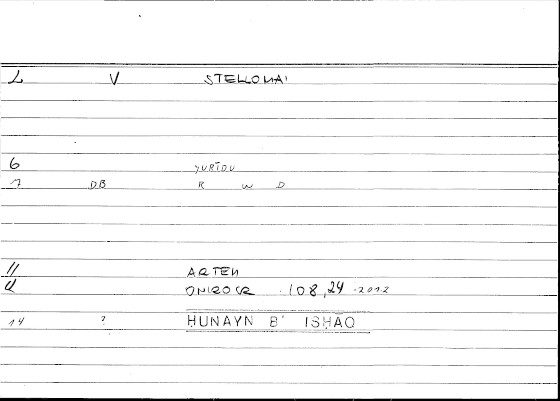 2 V STELLOMAI
6 YURĪDU
7 DB R W D
11 ARTEM
12 ONIROCR 108,24 -2012
14 ? HUNAYN B' ISHĀQ